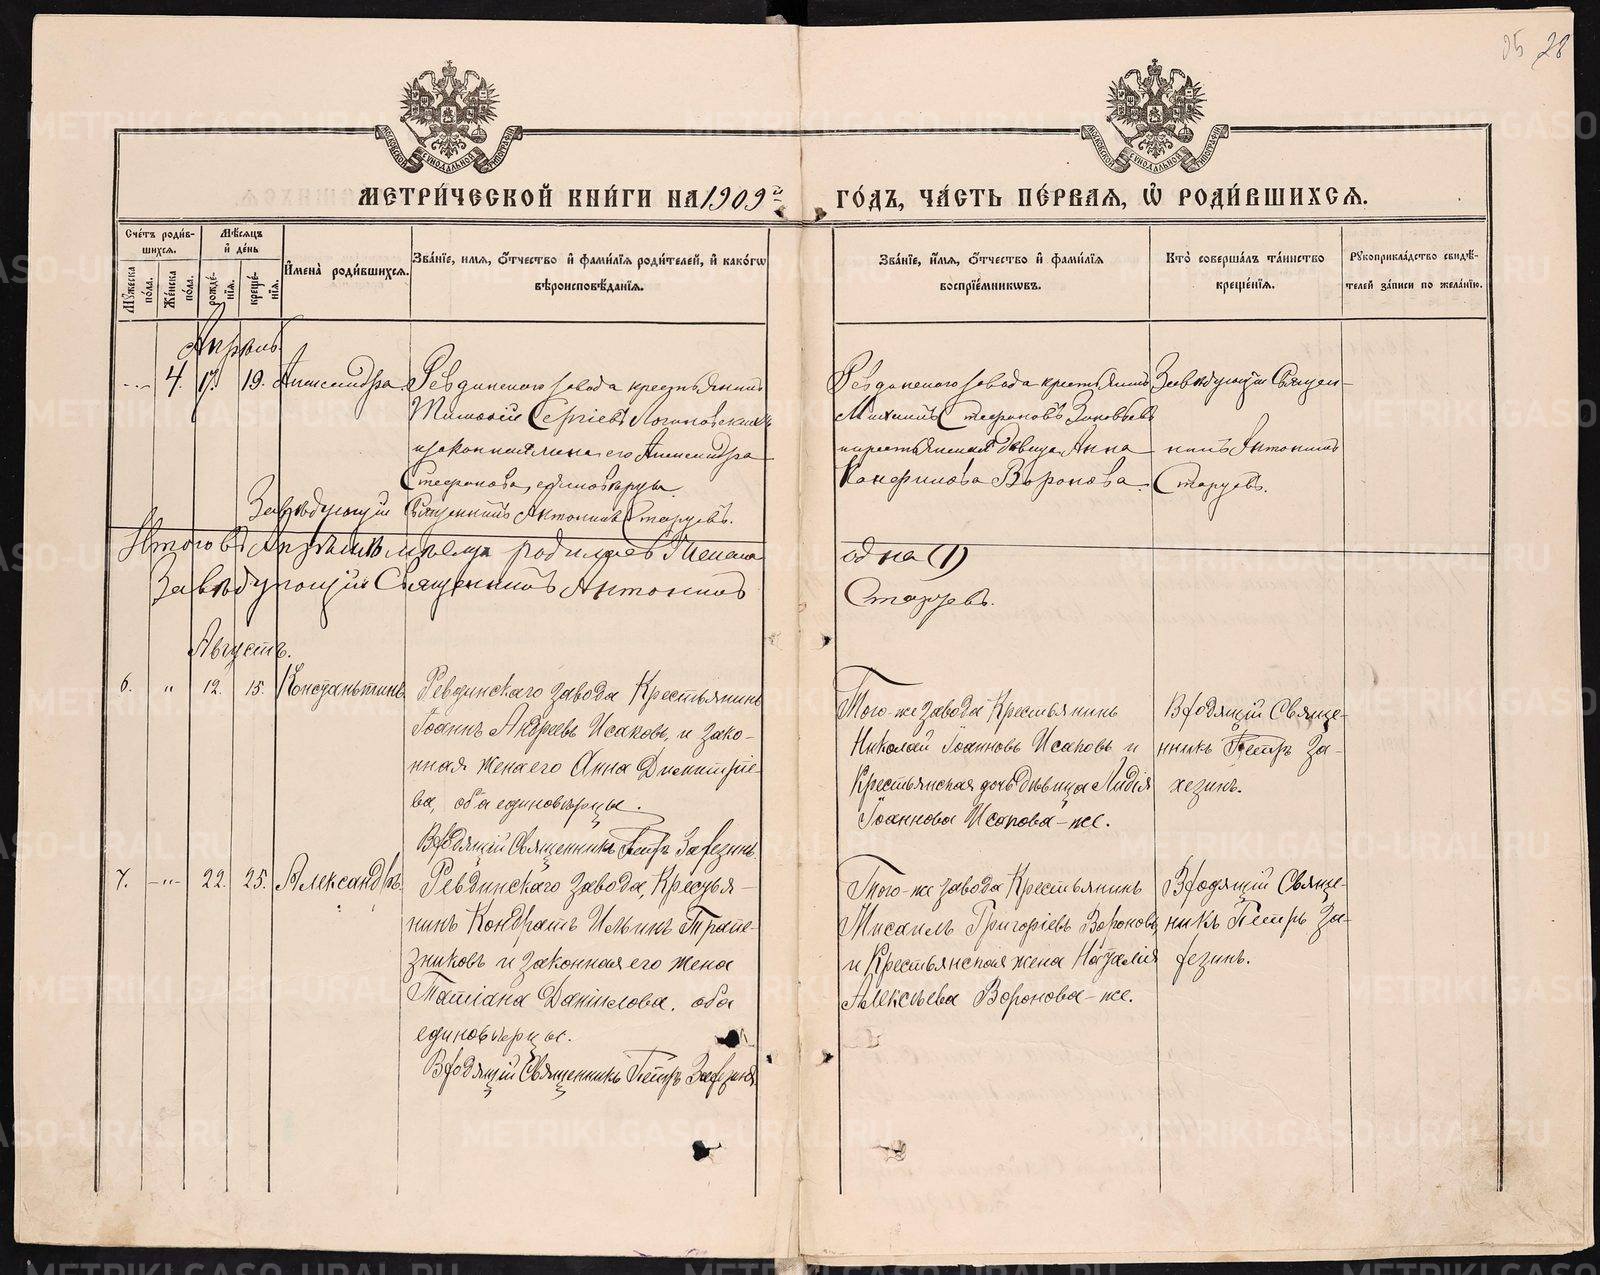 25 28
МОСКОВСКОЙ СѴНОДАЛЬНОЙ ТИПОГРАФІИ
МОСКОВСКОЙ СѴНОДАЛЬНОЙ ТИПОГРАФІИ
МЕТРИ́ЧЕСКОЙ КНИ́ГИ НА 1909й ГО́ДЪ, ЧА́СТЬ ПЕ́РВАЯ, Ѽ РОДИ́ВШИХСЯ.
Сче́тъ роди́в-
шихся.
Мꙋжеска по́ла.
Же́нска по́ла.
Мѣ́сяцъ
и҆ де́нь
рожде́-
нїя.
креще́-
нїя.
И҆мена̀ роди́вшихся.
Зва́нїе, имя, о́тчество и҆ фами́лїя роди́телей, и҆ како́гѡ
вѣроисповѣ́данїя.
Зва́нїе, и́мя, о́тчество и҆ фами́лїя
воспрїе́мникѡвъ.
Кто̀ соверша́лъ та́инство
креще́нїя.
Рꙋкоприкла́дство свидѣ́-
телей за́писи по жела́нїю.
Апрѣль.
4. 17. 19. Александра.
Ревдинскаго завода крестьянинъ
Тимоѳей Сергіевъ Логиновскихъ
и законная жена его Александра
Стефанова, единовѣрцы.
Завѣдующій Священникъ Антонинъ Старцевъ.
Ревдинскаго завода крестьянинъ
Стефановъ Зиновьевъ
и крестьянская дѣвица Анна
Воронова.
Завѣдующій Священ-
никъ Антонинъ
Старцевъ.
Итого въ Апрѣлѣ мѣсяцѣ родилось женска одна (1)
Завѣдующій Священникъ Антонинъ Старцевъ.
Августъ.
6. " 12. 15. Константинъ
Ревдинскаго завода Крестьянинъ
Іоаннъ Андреевъ Исаковъ, и зако-
нная жена его Анна Димитріе-
ва, оба единовѣрцы.
Входящій Священникъ Петръ Захезинъ.
Того-же завода Крестьянинъ
Николай Іоанновъ Исаковъ и
Крестьянская дочь дѣвица Лидія
Іоаннова Исакова-же.
Входящій Свяще-
нникъ Петръ За-
хезинъ.
7. -"- 22. 25. Александръ.
Ревдинскаго завода, Крестья-
нинъ Кондратъ Ильинъ Трапе-
зниковъ и законная его жена
Татіана Даніилова. оба
единовѣрцы.
Входящій Священникъ Петръ Захезинъ
Того-же завода Крестьянинъ
Мисаилъ Григоріевъ Вороновъ
и Крестьянская жена Наталія
Алексѣева Воронова-же.
Входящій Свяще-
никъ Петръ За-
хезинъ.
METRIKI.GASO-URAL.RU